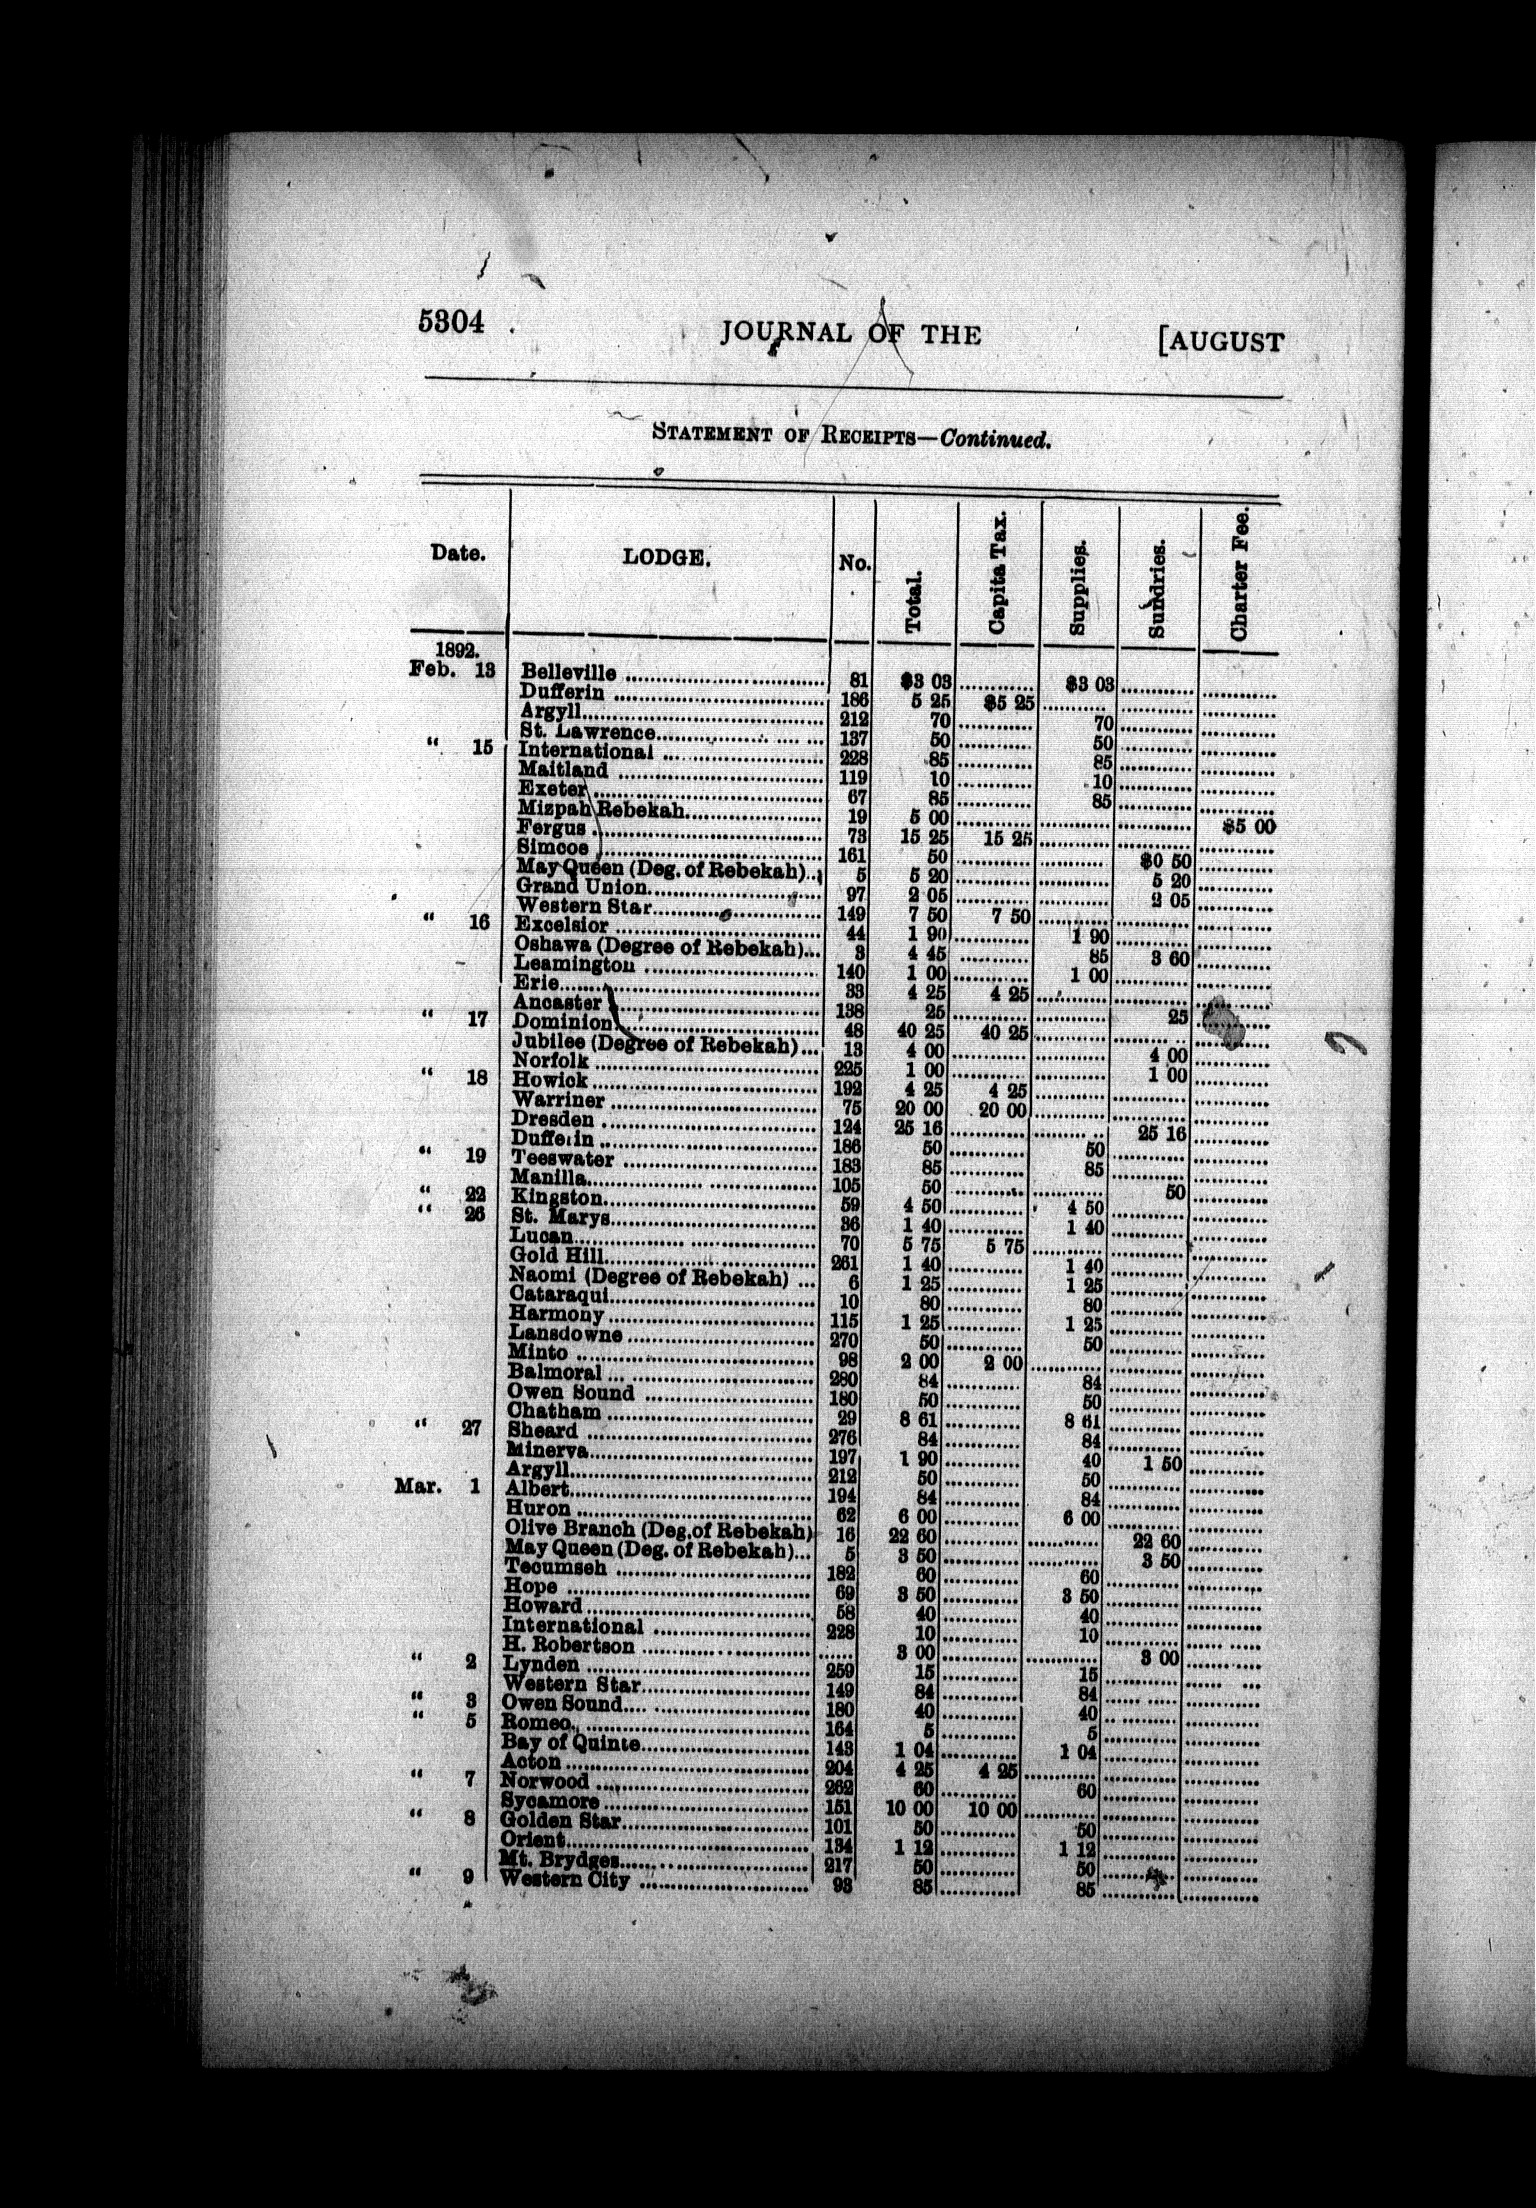 5304 JOURNAL OF THE [AUGUST
STATEMENT OF RECEIPTS—Continued.
Date. LODGE. No. Total. Capita Tax. Supplies. Sundries. Charter Fee.
1892.
Feb. 13 Belleville 81 $3 03 $3 03
Dufferin 186 5 25 $5 25
Argyll 212 70 70
St. Lawrence 137 50 50
" 15 International 228 85 85
Maitland 119 10 10
Exeter 67 85 85
Mizpah Rebekah 19 5 00 $5 00
Fergus 73 15 25 15 25
Simcoe 161 50 $0 50
May Queen (Deg. of Rebekah) 5 5 20 5 20
Grand Union 97 2 05 2 05
Western Star 149 7 50 7 50
" 16 Excelsior 44 1 90 1 90
Oshawa (Degree of Rebekah) 3 4 45 85 3 60
Leamington 140 1 00 1 00
Erie 33 4 25 4 25
Ancaster 138 25 25
" 17 Dominion 48 40 25 40 25
Jubilee (Degree of Rebekah) 13 4 00 4 00
Norfolk 225 1 00 1 00
" 18 Howick 192 4 25 4 25
Warriner 75 20 00 20 00
Dresden 124 25 16 25 16
Dufferin 186 50 50
" 19 Teeswater 183 85 85
Manilla 105 50 50
" 22 Kingston 59 4 50 4 50
" 26 St. Marys 36 1 40 1 40
Lucan 70 5 75 5 75
Gold Hill 261 1 40 1 40
Naomi (Degree of Rebekah) 6 1 25 1 25
Cataraqui 10 80 80
Harmony 115 1 25 1 25
Lansdowne 270 50 50
Minto 98 2 00 2 00
Balmoral 280 84 84
Owen Sound 180 50 50
Chatham 29 8 61 8 61
" 27 Sheard 276 84 84
Minerva 197 1 90 40 1 50
Argyll 212 50 50
Mar. 1 Albert 194 84 84
Huron 62 6 00 6 00
Olive Branch (Deg. of Rebekah) 16 22 60 22 60
May Queen (Deg. of Rebekah) 5 3 50 3 50
Tecumseh 182 60 60
Hope 69 3 50 3 50
Howard 58 40 40
International 228 10 10
H. Robertson 3 00 3 00
" 2 Lynden 259 15 15
Western Star 149 84 84
" 3 Owen Sound 180 40 40
" 5 Romeo 164 5 5
Bay of Quinte 143 1 04 1 04
Acton 204 4 25 4 25
" 7 Norwood 262 60 60
Sycamore 151 10 00 10 00
" 8 Golden Star 101 50 50
Orient 134 1 12 1 12
Mt. Brydges 217 50 50
" 9 Western City 93 85 85